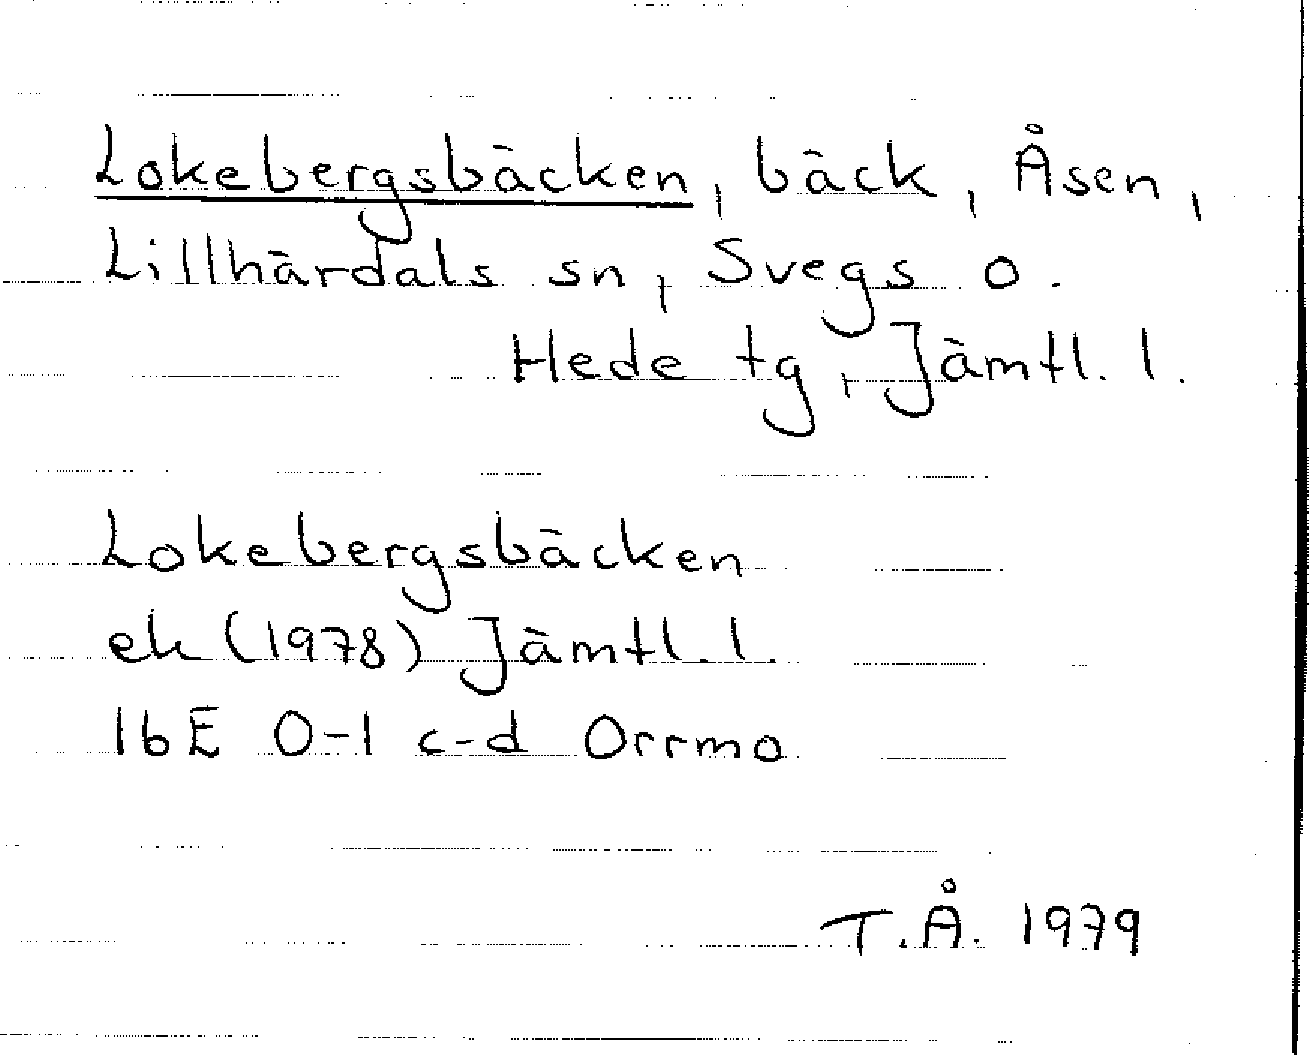 Lokebergsbäcken, bäck, Åsen,
Lillhärdals sn, Svegs o.
Hede tg, Jämtl. l.
Lokebergsbäcken
ek (1978) Jämtl. l.
16E 0-1 c-d Orrmo
T.Å. 1979